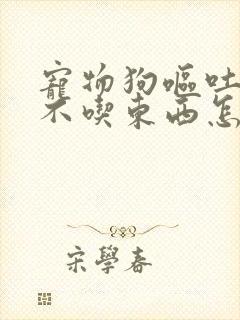 寵物狗嘔吐
不喫東西怎
宋學春